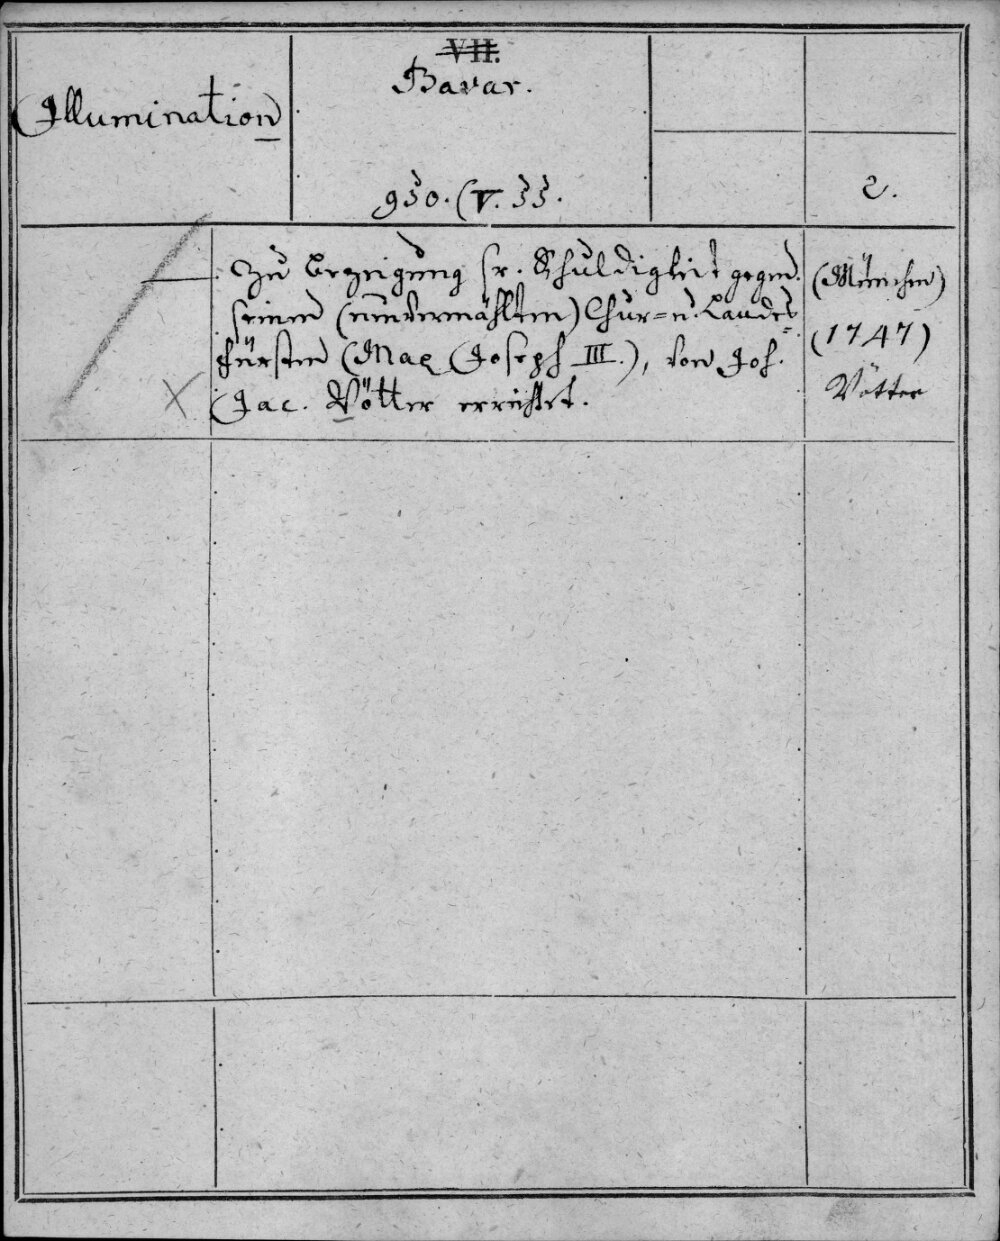 VII.
Bavar.
Illumination
930. (V. 33.
2.
— zu Bezeigung sr. Schuldigkeit gegen
seinen (neuvermählten) Chur= u. Landes=
fürsten (Max Joseph III.), von Joh.
Jac. Vötter errichtet.
(München)
(1747)
Vötter